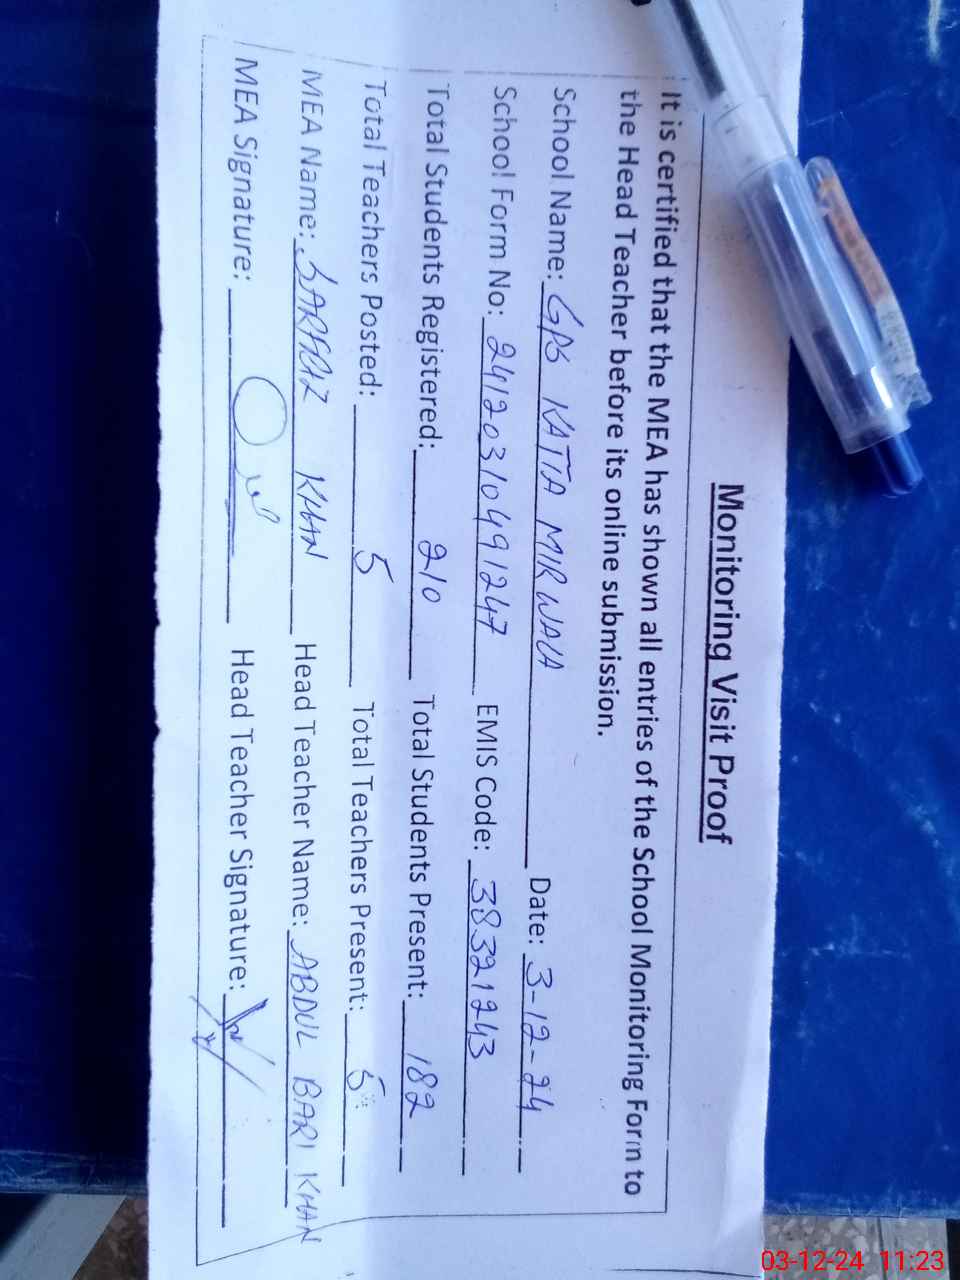 Monitoring Visit Proof
It is certified that the MEA has shown all entries of the School Monitoring Form to
the Head Teacher before its online submission.
School Name: GPS KATTA MIRWALA Date: 3-12-24
School Form No: 24120310491247 EMIS Code: 38321243
Total Students Registered: 210 Total Students Present: 182
Total Teachers Posted: 5 Total Teachers Present: 5
MEA Name: SARFRAZ KHAN Head Teacher Name: ABDUL BARI KHAN
MEA Signature: Head Teacher Signature:
03-12-24 11:23